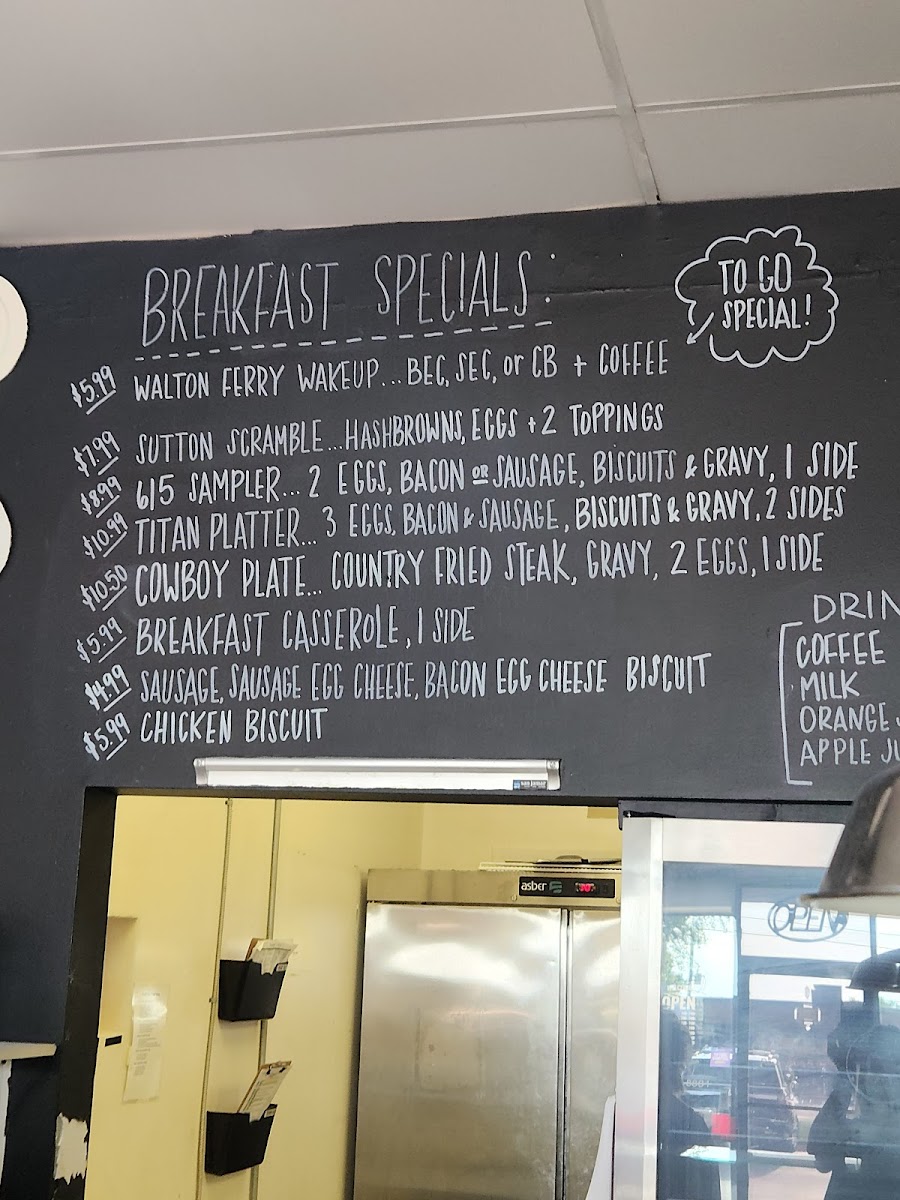 BREAKFAST SPECIALS:
TO GO
SPECIAL!
$5.99 WALTON FERRY WAKEUP... BEC, SEC, or CB + COFFEE
$7.99 SUTTON SCRAMBLE... HASHBROWNS, EGGS + 2 TOPPINGS
$8.99 615 SAMPLER... 2 EGGS, BACON OR SAUSAGE, BISCUITS & GRAVY, 1 SIDE
$10.99 TITAN PLATTER... 3 EGGS, BACON & SAUSAGE, BISCUITS & GRAVY, 2 SIDES
$10.50 COWBOY PLATE... COUNTRY FRIED STEAK, GRAVY, 2 EGGS, 1 SIDE
$5.99 BREAKFAST CASSEROLE, 1 SIDE
$4.99 SAUSAGE, SAUSAGE EGG CHEESE, BACON EGG CHEESE BISCUIT
$5.99 CHICKEN BISCUIT
DRIN
COFFEE
MILK
ORANGE J
APPLE JU
asber
OPEN
OPEN